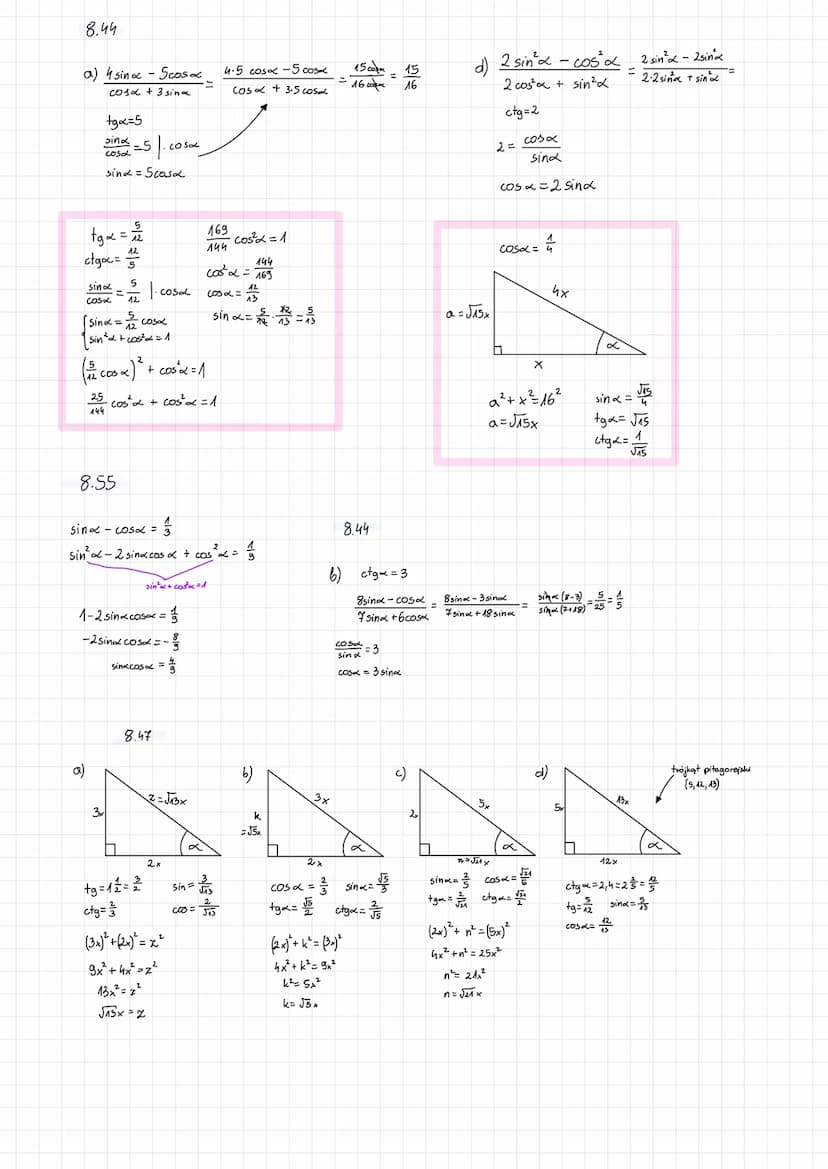 8.44
a) (4 sinα − 5cosα)/(cosα + 3 sinα) = (4·5 cosα − 5 cosα)/(cosα + 3·5 cosα) = 15 cosα/16 cosα = 15/16
tgα=5
sinα/cosα = 5 | · cosα
sinα = 5cosα
d) (2 sin²α − cos²α)/(2 cos²α + sin²α) = (2 sin²α − 2sin²α)/(2·2sin²α + sin²α) =
ctg=2
2 = cosα/sinα
cosα = 2 sinα
tgα = 5/12
ctgα = 12/5
sinα/cosα = 5/12 | · cosα
{ sinα = 5/12 cosα
sin²α + cos²α = 1
(5/12 cosα)² + cos²α = 1
25/144 cos²α + cos²α = 1
169/144 cos²α = 1
cos²α = 144/169
cosα = 12/13
sinα = 5/12 · 12/13 = 5/13
cosα = 1/4
a = √15x
4x
α
x
a² + x² = 16²
a = √15x
sinα = √15/4
tgα = √15
ctgα = 1/√15
8.55
sinα − cosα = 1/3
sin²α − 2 sinαcosα + cos²α = 1/9
sin²α + cos²α = 1
1 − 2 sinαcosα = 1/9
−2sinαcosα = − 8/9
sinαcosα = 4/9
8.44
b) ctgα = 3
(8sinα − cosα)/(7sinα + 6cosα) = (8sinα − 3sinα)/(7sinα + 18sinα) = sinα(8−3)/sinα(7+18) = 5/25 = 1/5
cosα/sinα = 3
cosα = 3 sinα
8.47
a)
3x
z=√13x
α
2x
tg = 1 1/2 = 3/2
sin = 3/√13
ctg = 2/3
cos = 2/√13
(3x)² + (2x)² = z²
9x² + 4x² = z²
13x² = z²
√13x = z
b)
3x
k
=√5x
α
2x
cosα = 2/3
sinα = √5/3
tgα = √5/2
ctgα = 2/√5
(2x)² + k² = (3x)²
4x² + k² = 9x²
k² = 5x²
k = √5x
c)
2x
5x
α
n=√21x
sinα = 2/5
cosα = √21/5
tgα = 2/√21
ctgα = √21/2
(2x)² + n² = (5x)²
4x² + n² = 25x²
n² = 21x²
n = √21x
d)
5x
13x
α
12x
trójkąt pitagorejski
(5,12,13)
ctgα = 2,4 = 2 2/5 = 12/5
tg = 5/12
sinα = 5/13
cosα = 12/13